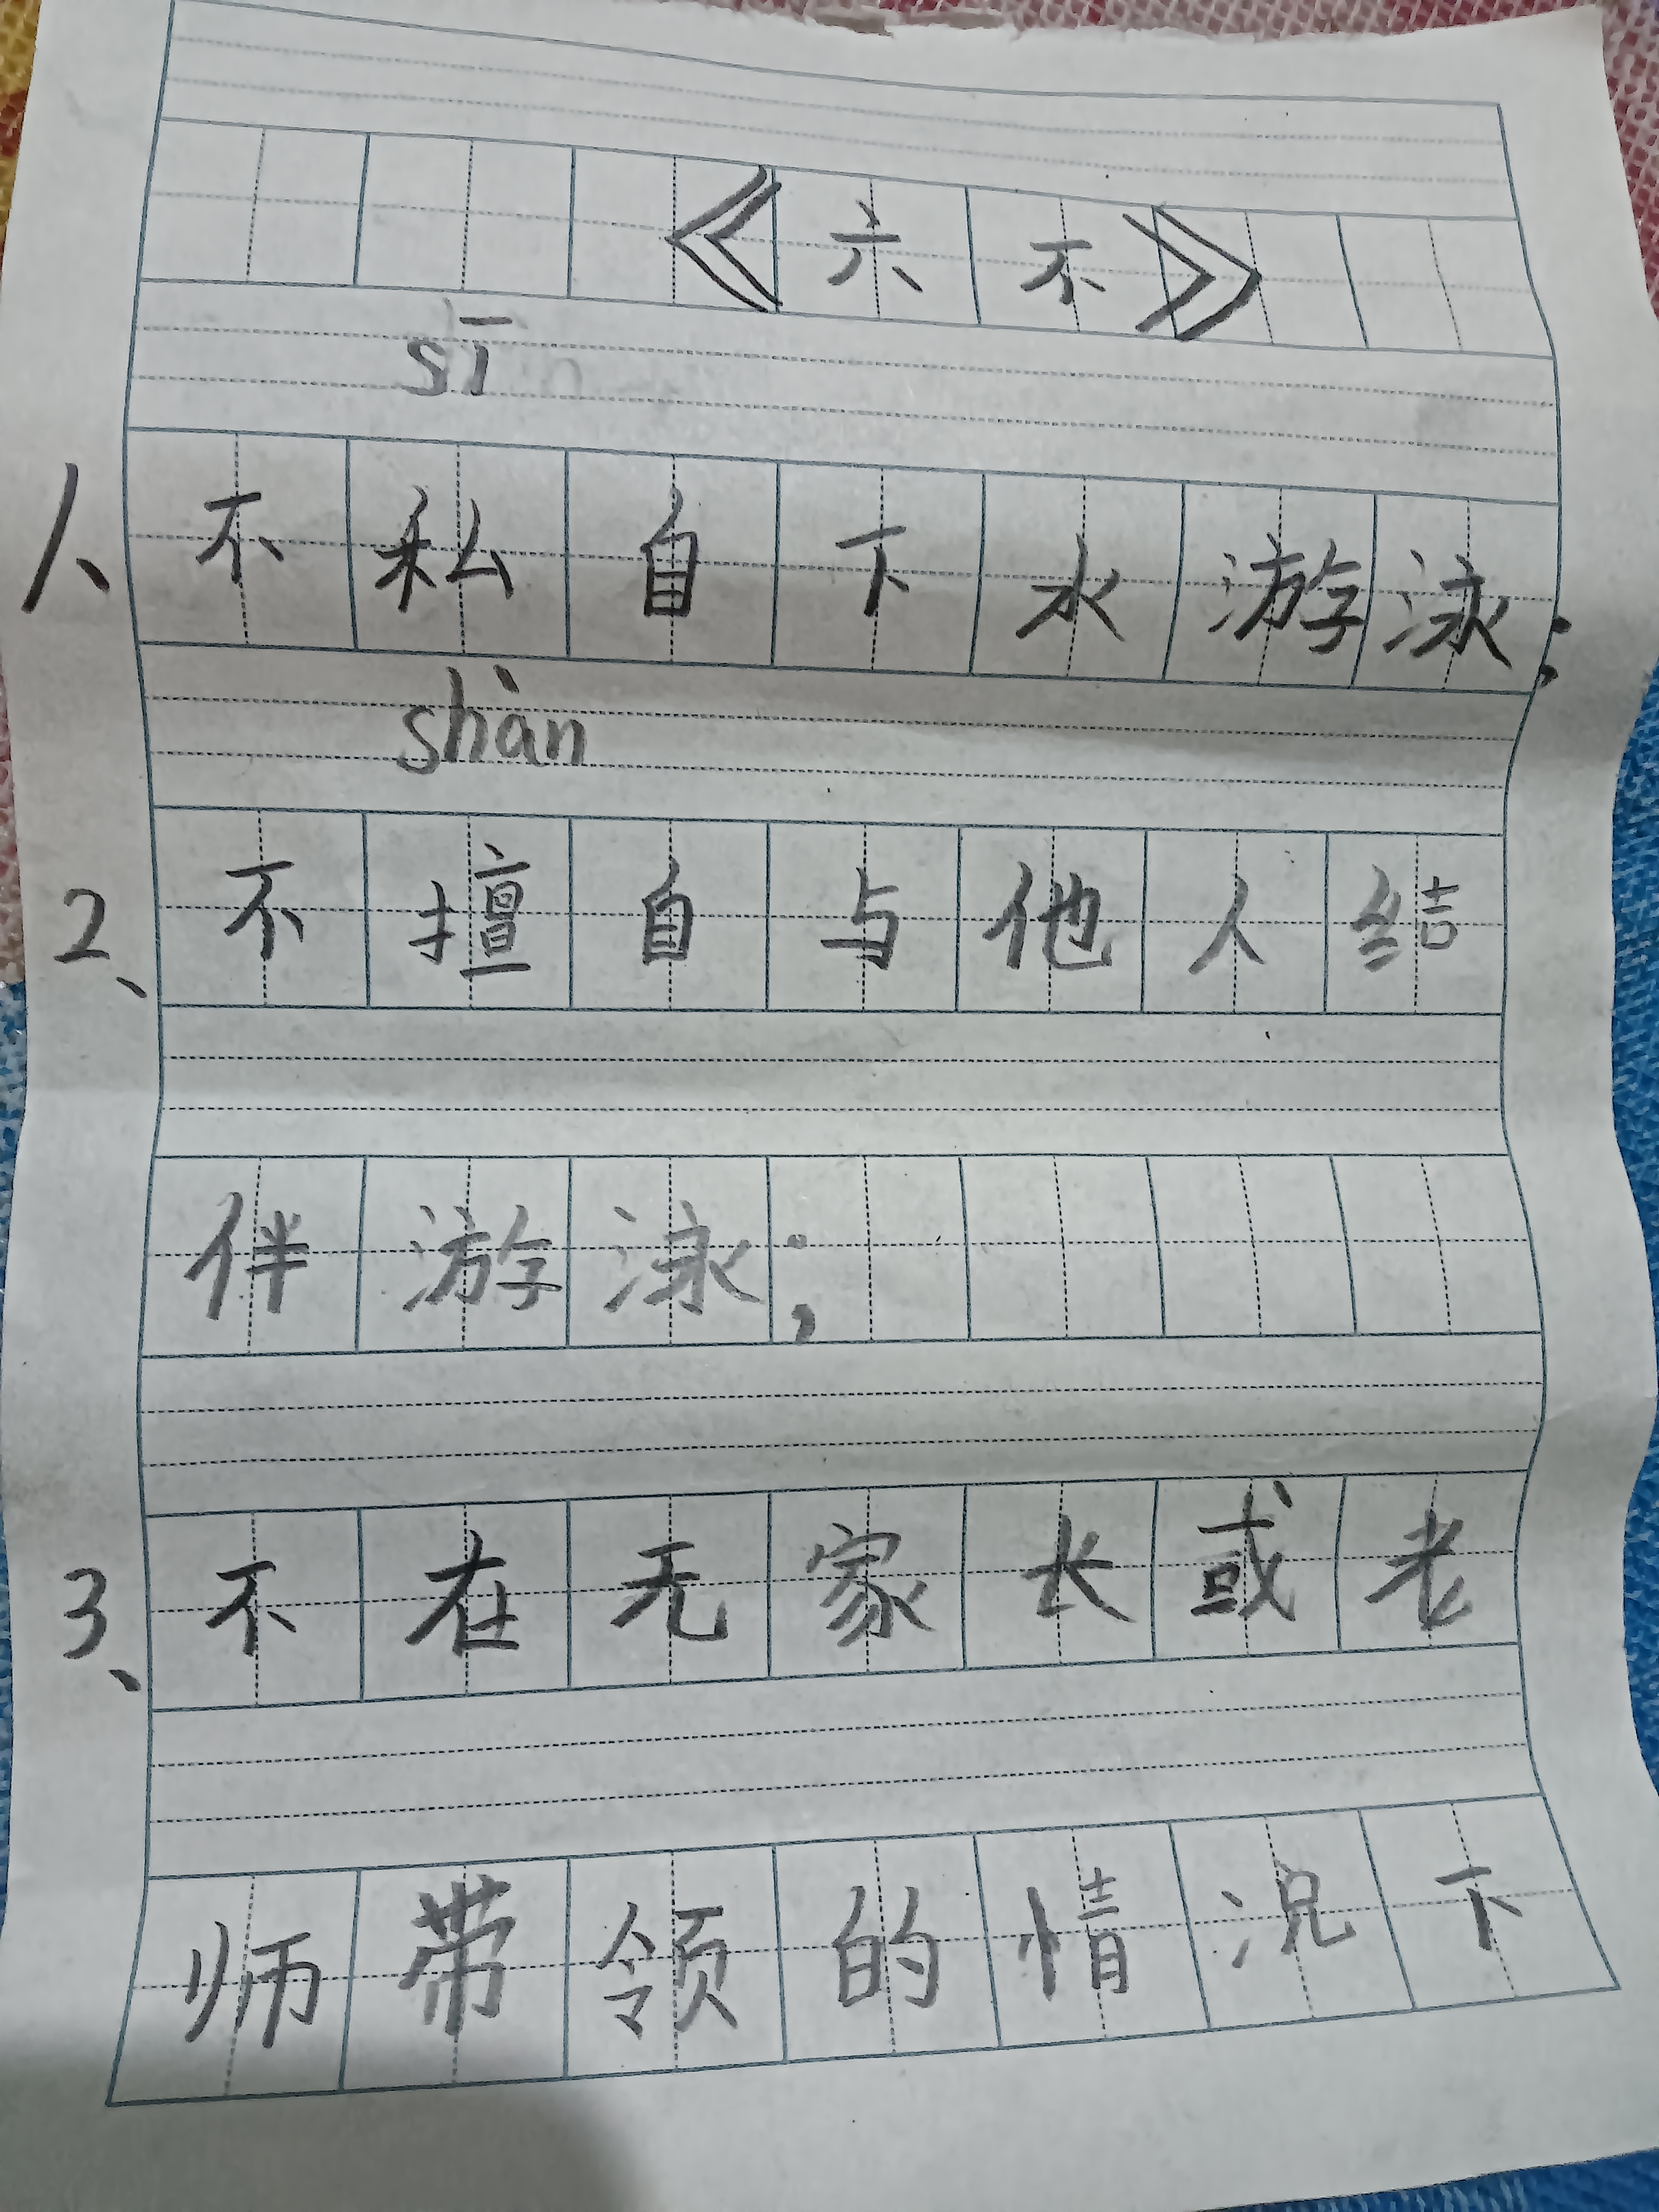 《六不》
sī
1、不私自下水游泳;
shàn
2、不擅自与他人结
伴游泳;
3、不在无家长或老
师带领的情况下